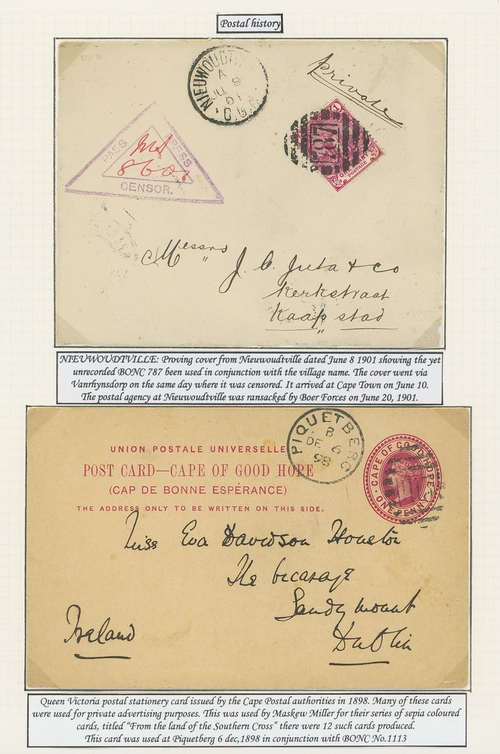 Postal history
NIEUWOUDTV
JU 8
01
C.G.H
Private
787
PASS
PRESS
8 6 01
CENSOR.
Messrs
J. C. Juta & Co
Kerkstraat
Kaapstad
NIEUWOUDTVILLE: Proving cover from Nieuwoudtville dated June 8 1901 showing the yet
unrecorded BONC 787 been used in conjunction with the village name. The cover went via
Vanrhynsdorp on the same day where it was censored. It arrived at Cape Town on June 10.
The postal agency at Nieuwoudtville was ransacked by Boer Forces on June 20, 1901.
PIQUETBERG
B
DE 6
98
UNION POSTALE UNIVERSELLE
POST CARD—CAPE OF GOOD HOPE
(CAP DE BONNE ESPÉRANCE)
THE ADDRESS ONLY TO BE WRITTEN ON THIS SIDE.
CAPE OF GOOD HOPE
ONE PENNY
Miss Eva Davidson Houston
The Vicarage
Sandymount
Ireland
Dublin
Queen Victoria postal stationery card issued by the Cape Postal authorities in 1898. Many of these cards
were used for private advertising purposes. This was used by Maskew Miller for their series of sepia coloured
cards, titled "From the land of the Southern Cross" there were 12 such cards produced.
This card was used at Piquetberg 6 dec,1898 in conjunction with BONC No.1113